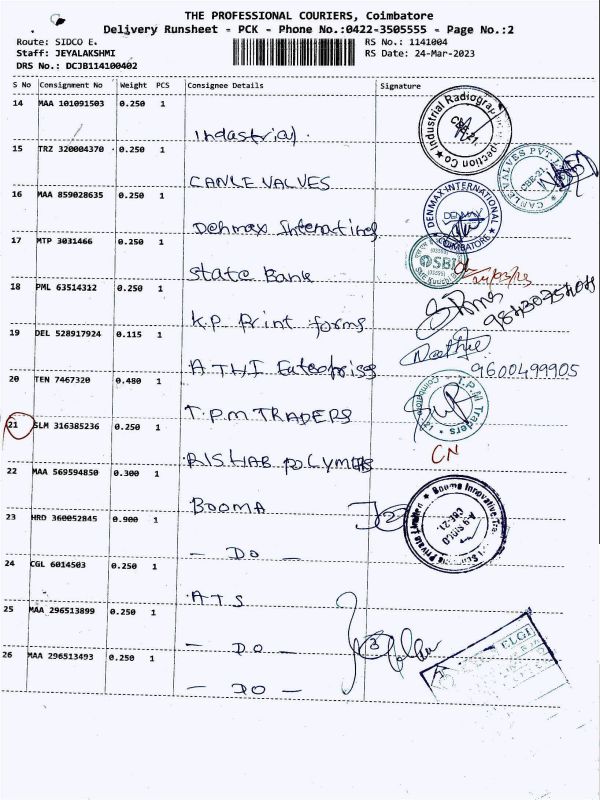 THE PROFESSIONAL COURIERS, Coimbatore
Delivery Runsheet - PCK - Phone No.:0422-3505555 - Page No.:2
Route: SIDCO E. RS No.: 1141004
Staff: JEYALAKSHMI RS Date: 24-Mar-2023
DRS No.: DCJB114100402
S No Consignment No Weight PCS Consignee Details Signature
14 MAA 101091503 0.250 1
Indastrial.
15 TRZ 320004370 0.250 1
CANLE VALVES
16 MAA 859028635 0.250 1
Denmax
17 MTP 3031466 0.250 1
State Bank
18 PML 63514312 0.250 1
K.P Print forms
19 DEL 528917924 0.115 1
ATHI
20 TEN 7467320 0.480 1
T.P.M TRADERS
21 SLM 316385236 0.250 1
RISHAB
22 MAA 569594850 0.300 1
BOOMA
23 HRD 360052845 0.900 1
- DO -
24 CGL 6014503 0.250 1
ATS
25 MAA 296513899 0.250 1
- DO -
26 MAA 296513493 0.250 1
- DO -
CBE-21
CANLE VALVES PVT.
CBE-21
DENMAX INTERNATIONAL
DENMAX
COIMBATORE
SBI
24/03/23
9600499905
T.P.M Traders
CN
Booma Innovative
Private Limited
A-9 SIDCO
CBE-21.
ELGI